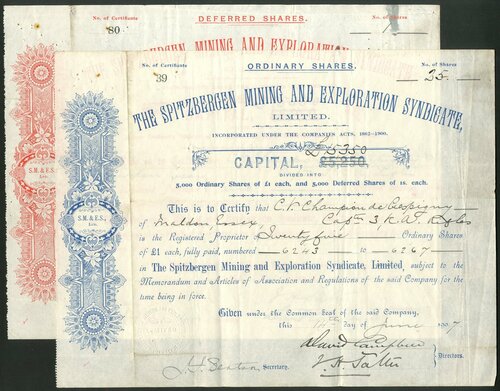 No. of Certificate
DEFERRED SHARES.
No. of Shares
80
1
SPITZBERGEN MINING AND EXPLORATION
No. of Certificate
ORDINARY SHARES.
No. of Shares
39
25
THE SPITZBERGEN MINING AND EXPLORATION SYNDICATE,
LIMITED.
INCORPORATED UNDER THE COMPANIES ACTS, 1862-1900.
£5350
CAPITAL, £5,250
DIVIDED INTO
5,000 Ordinary Shares of £1 each, and 5,000 Deferred Shares of 1s. each.
This is to Certify that C. Champion de Crespigny
of Maldon, Essex, Capt 3
is the Registered Proprietor Twenty five Ordinary Shares
of £1 each, fully paid, numbered 6243 to 6267
in The Spitzbergen Mining and Exploration Syndicate, Limited, subject to the
Memorandum and Articles of Association and Regulations of the said Company for the
time being in force.
Given under the Common Seal of the said Company,
this day of June 1907
David Campbell
Directors.
Secretary.
S.M.&E.S.,
Ltd.
S.M.&E.S.,
Ltd.